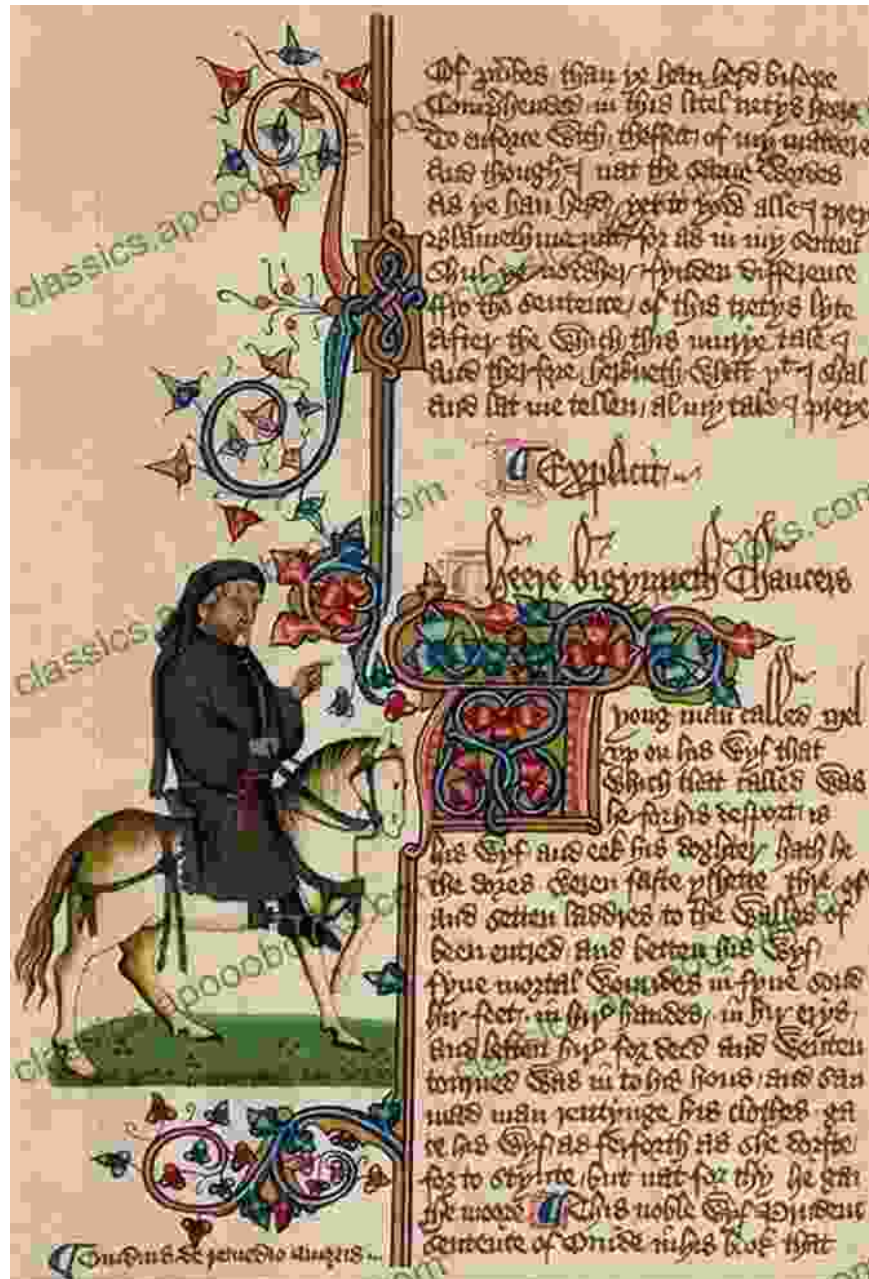 Of prouerbes, than ye han herd bifore
Comprehended, in this litel tretys heere
To enforce with, theffect, of my mateere
And though I nat the same wordes
As ye han herd, yet to yow alle I preye
Blameth me nat, for as in my senten
Shul ye nowher, fynden difference
ffro the sentence, of this tretys lyte
After the which, this murye tale I
And ther fore, herkneth, what þt I shal
And lat me tellen, al my tale I preye
Explicit
Heere bigynneth Chaucers
yong man called Mel
vp on his wyf that
which that called was
he for his desport, is
his wyf and eek his doghter hath he
the dores weren faste yshette thre of
and setten laddres to the walles of
been entred, and betten his wyf,
fyue mortal woundes in fyue sond
hir feet, in hir handes, in hir erys,
and leften hir for deed and wenten
torned was in to his hous, and sau
mad man rentynge his clothes ga
te his wyf, as ferforth as she dorste,
for to stynte, but nat for thy he gan
the moore This noble wyf Prudent
sentence of Ouide in his book that
Ouidius de remedio amoris
classics.apooobooks.com